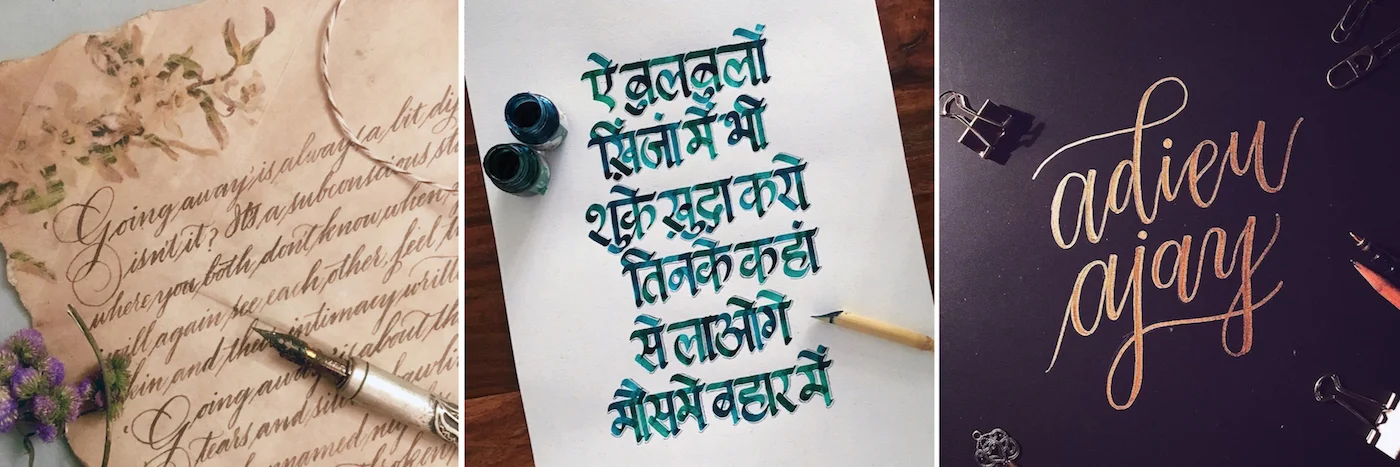 Going away is always a lit
isn't it? Its a subconscious
where you both don't know when,
will again see each other, feel
skin and intimacy
Going about
tears and
unnamed
ऐ बुलबुलों
ख़िंजां में भी
शुक्रे ख़ुदा करो
तिनके कहां
से लाओगे
मौसमे बहार में
adieu
ajay